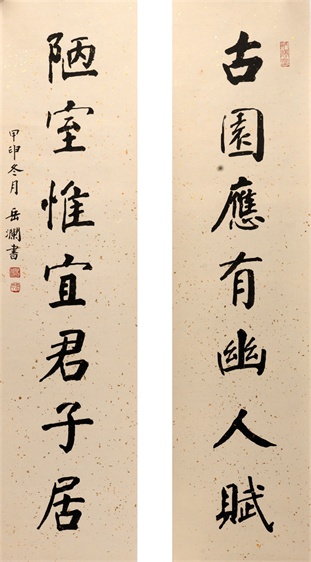 古園應有幽人賦
陋室惟宜君子居
甲申冬月岳瀾書